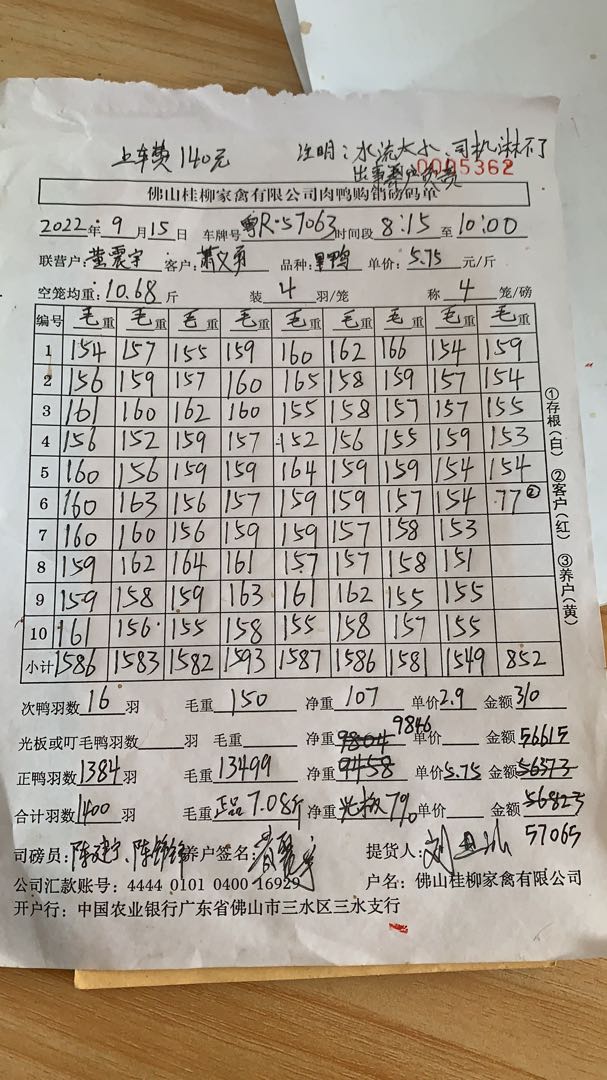 上车费140元 注明：水流大小、司机淋不了
出事养户负责
0005362
佛山桂柳家禽有限公司肉鸭购销磅码单
2022年9月15日 车牌号粤R·57063时间段8:15至10:00
联营户: 客户:萧义勇 品种:里鸭 单价:5.75元/斤
空笼均重:10.68斤 装4羽/笼 称4笼/磅
编号 毛重 毛重 毛重 毛重 毛重 毛重 毛重 毛重 毛重
1 154 157 155 159 160 162 166 154 159
2 156 159 157 160 165 158 159 157 154
3 161 160 162 160 155 158 157 157 155
4 156 152 159 157 152 156 155 159 153
5 160 156 159 159 164 159 159 154 154
6 160 163 156 157 159 159 157 154 77②
7 160 160 156 159 159 157 158 153
8 159 162 164 161 157 157 158 151
9 159 158 159 163 161 162 155 155
10 161 156 155 158 155 158 157 155
小计 1586 1583 1582 1593 1587 1586 1581 1549 852
①存根(白) ②客户(红) ③养户(黄)
次鸭羽数16羽 毛重150 净重107 单价2.9 金额310
光板或叮毛鸭羽数 羽 毛重 净重9804 9846 单价 金额56615
正鸭羽数1384羽 毛重13499 净重9458 单价5.75 金额56573
合计羽数1400羽 毛重正品7.08斤 净重光板7% 单价 金额56823
57065
司磅员: 养户签名: 提货人:
公司汇款账号: 4444 0101 0400 16929 户名: 佛山桂柳家禽有限公司
开户行: 中国农业银行广东省佛山市三水区三水支行